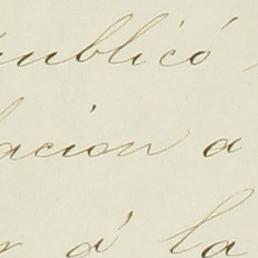 publicó
lación a
á la